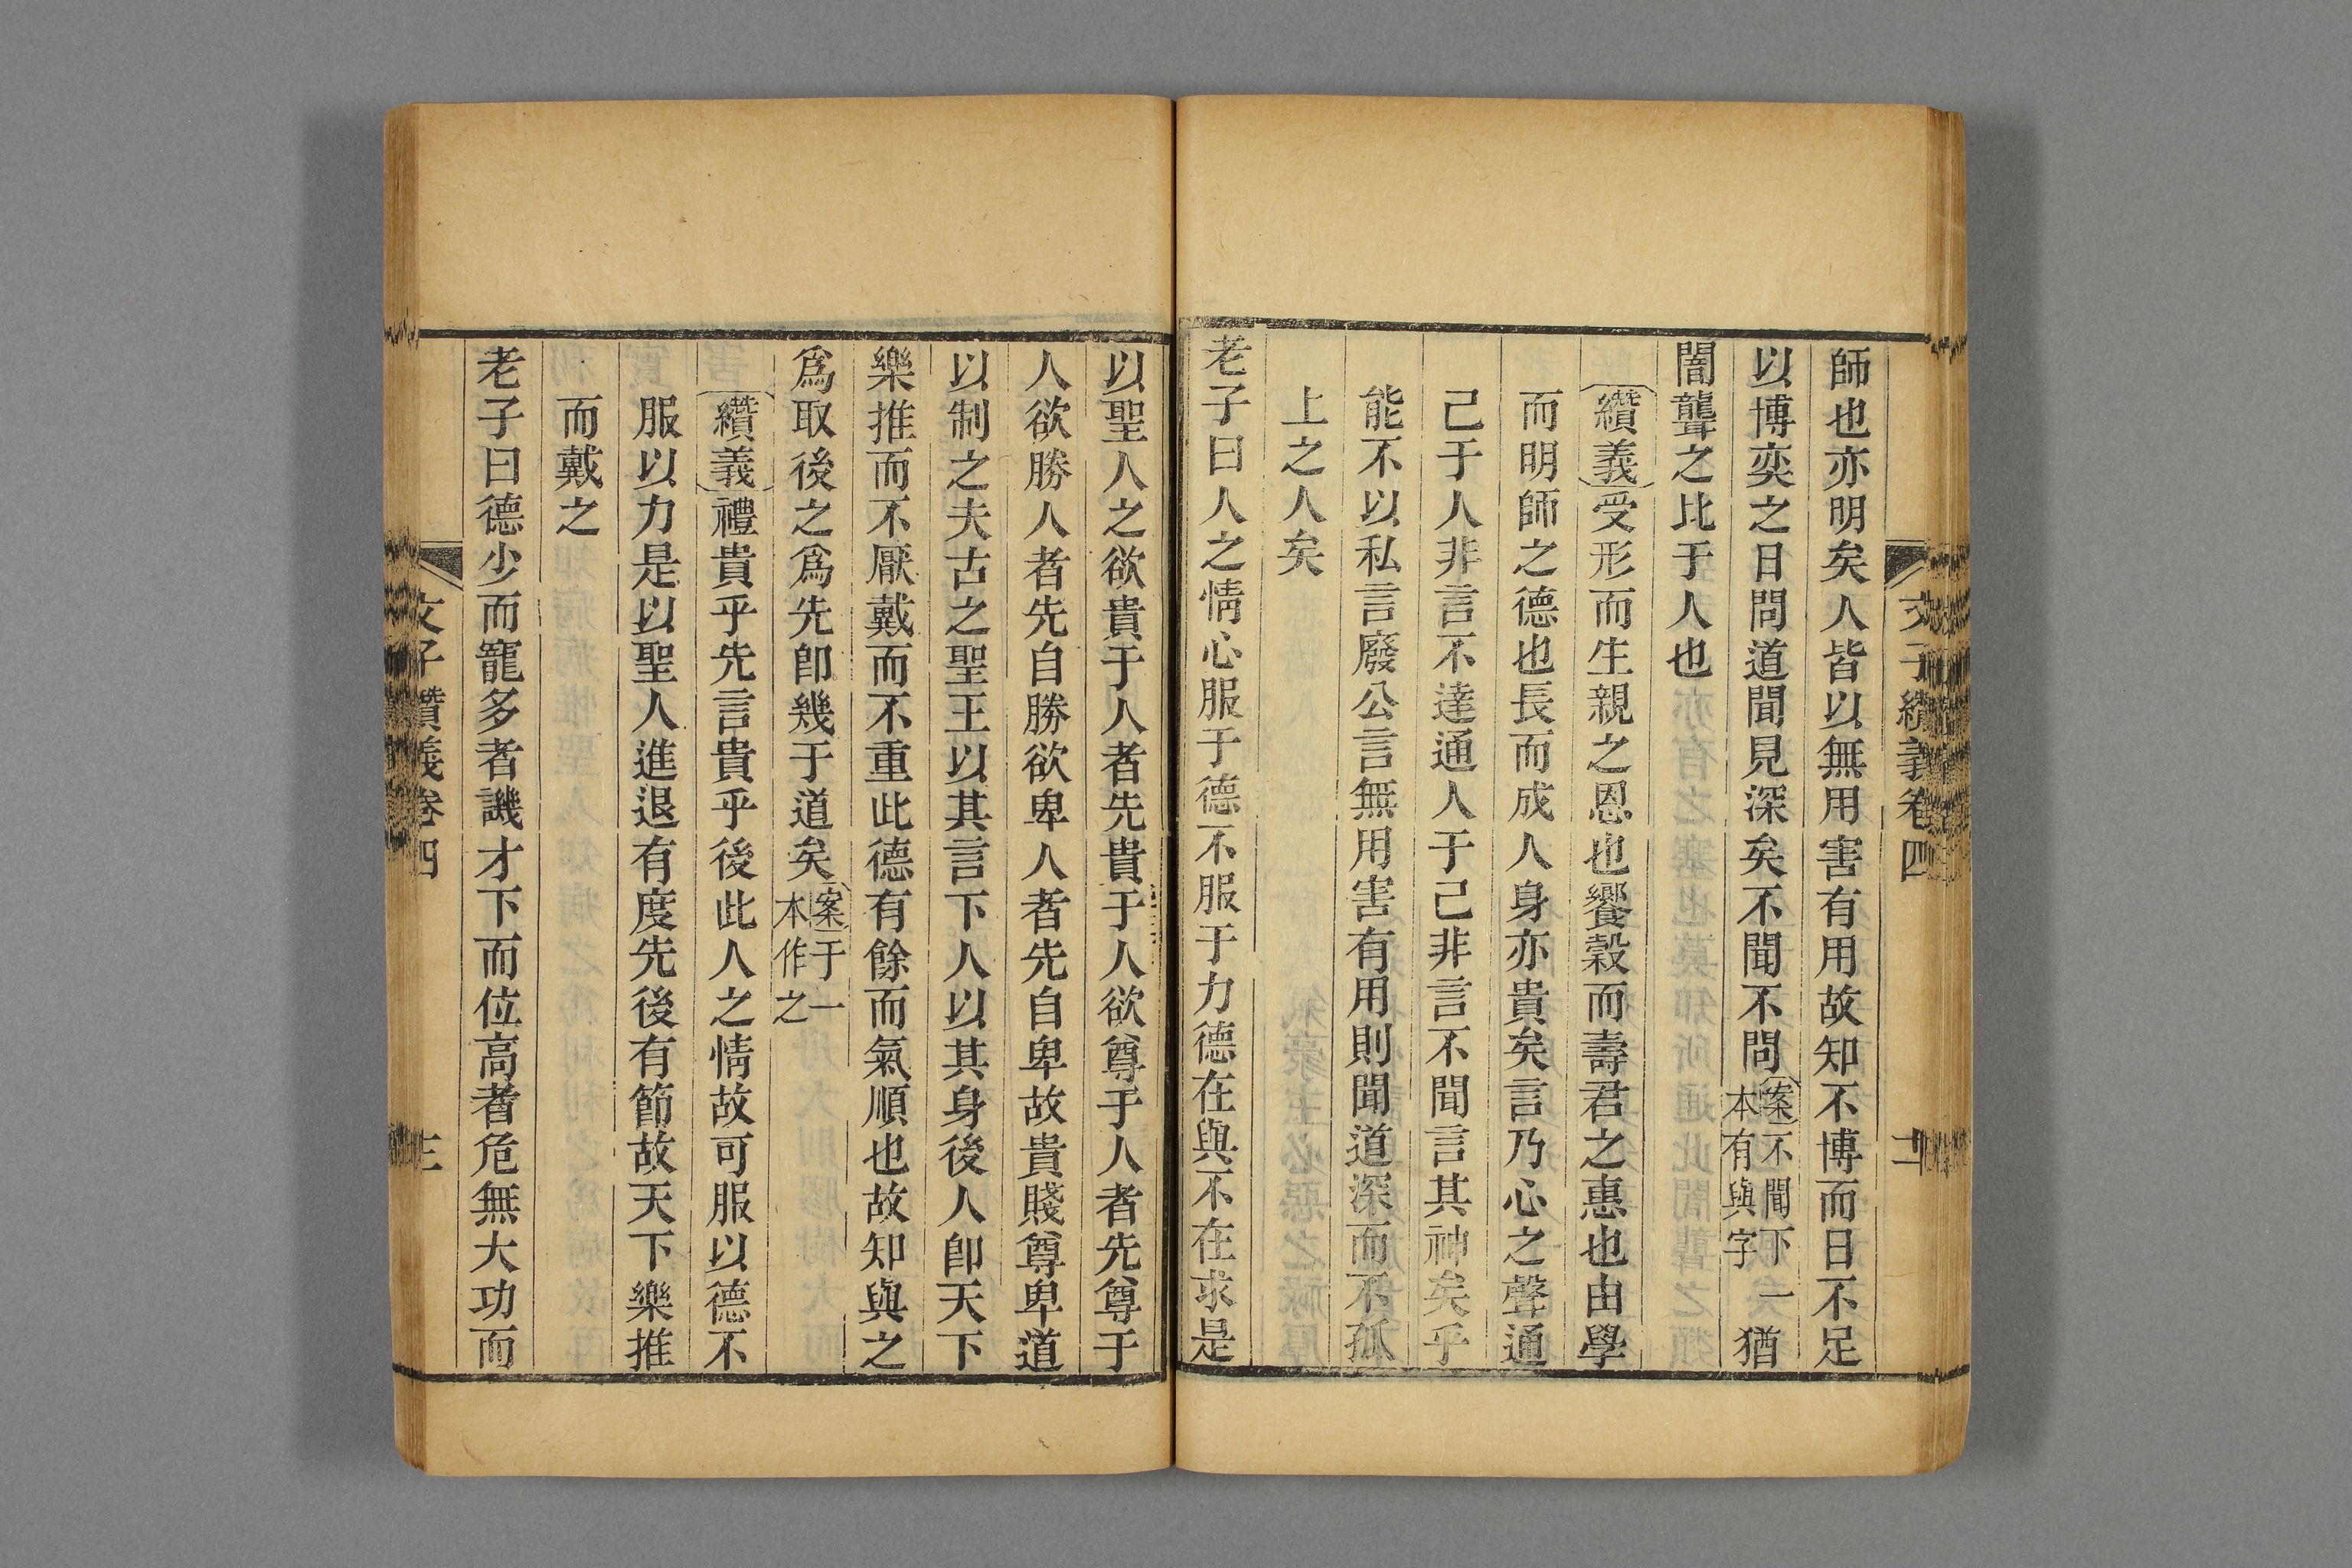 文子纘義卷四 二
師也亦明矣人皆以無用害有用故知不博而日不足
以博奕之日問道聞見深矣不聞不問案不聞下一本有與字猶
闇聾之比于人也
纘義受形而生親之恩也饗穀而壽君之惠也由學
而明師之德也長而成人身亦貴矣言乃心之聲通
己于人非言不達通人于己非言不聞言其神矣乎
能不以私言廢公言無用害有用則聞道深而不孤
上之人矣
老子曰人之情心服于德不服于力德在與不在求是
以聖人之欲貴于人者先貴于人欲尊于人者先尊于
人欲勝人者先自勝欲卑人者先自卑故貴賤尊卑道
以制之夫古之聖王以其言下人以其身後人卽天下
樂推而不厭戴而不重此德有餘而氣順也故知與之
爲取後之爲先卽幾于道矣案于一本作之
纘義禮貴乎先言貴乎後此人之情故可服以德不
服以力是以聖人進退有度先後有節故天下樂推
而戴之
老子曰德少而寵多者譏才下而位高者危無大功而
文子纘義卷四 三